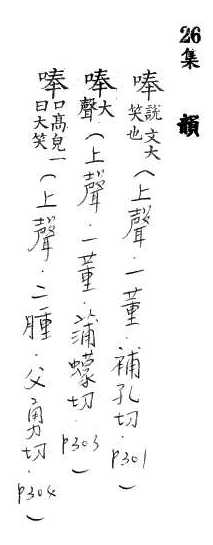 26集韻
唪說文大笑也(上聲.一董.補孔切.P301)
唪大聲(上聲.一董.蒲蠓切.P303)
唪口高皃一曰大笑(上聲.二腫.父勇切.P304)